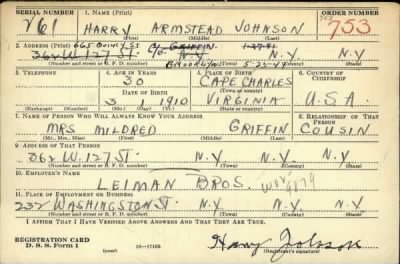 SERIAL NUMBER 1. NAME (Print) ORDER NUMBER
V61 HARRY ARMSTEAD JOHNSON 753
(First) (Middle) (Last)
2. ADDRESS (Print) C/o GRIFFIN 1-27-41
362 W. 127 ST. N.Y. N.Y. N.Y
BROOKLYN
(Number and street or R. F. D. number) (Town) (County) (State)
3. TELEPHONE 4. AGE IN YEARS 5. PLACE OF BIRTH 6. COUNTRY OF CITIZENSHIP
30 CAPE CHARLES
DATE OF BIRTH (Town or county)
3 1910 VIRGINIA U.S.A.
(Exchange) (No.) (Mo.) (Day) (Yr.) (State or country)
7. NAME OF PERSON WHO WILL ALWAYS KNOW YOUR ADDRESS 8. RELATIONSHIP OF THAT PERSON
MRS MILDRED GRIFFIN COUSIN
(Mr., Mrs., Miss) (First) (Middle) (Last)
9. ADDRESS OF THAT PERSON
362 W. 127 ST. N.Y. N.Y. N.Y
(Number and street or R. F. D. number) (Town) (County) (State)
10. EMPLOYER'S NAME
LEIMAN BROS.
11. PLACE OF EMPLOYMENT OR BUSINESS
232 WASHINGTON ST N.Y. N.Y N.Y
(Number and street or R. F. D. number) (Town) (County) (State)
I AFFIRM THAT I HAVE VERIFIED ABOVE ANSWERS AND THAT THEY ARE TRUE.
REGISTRATION CARD
D. S. S. Form 1 (over) 16—17105 Harry Johnson
(Registrant's signature)